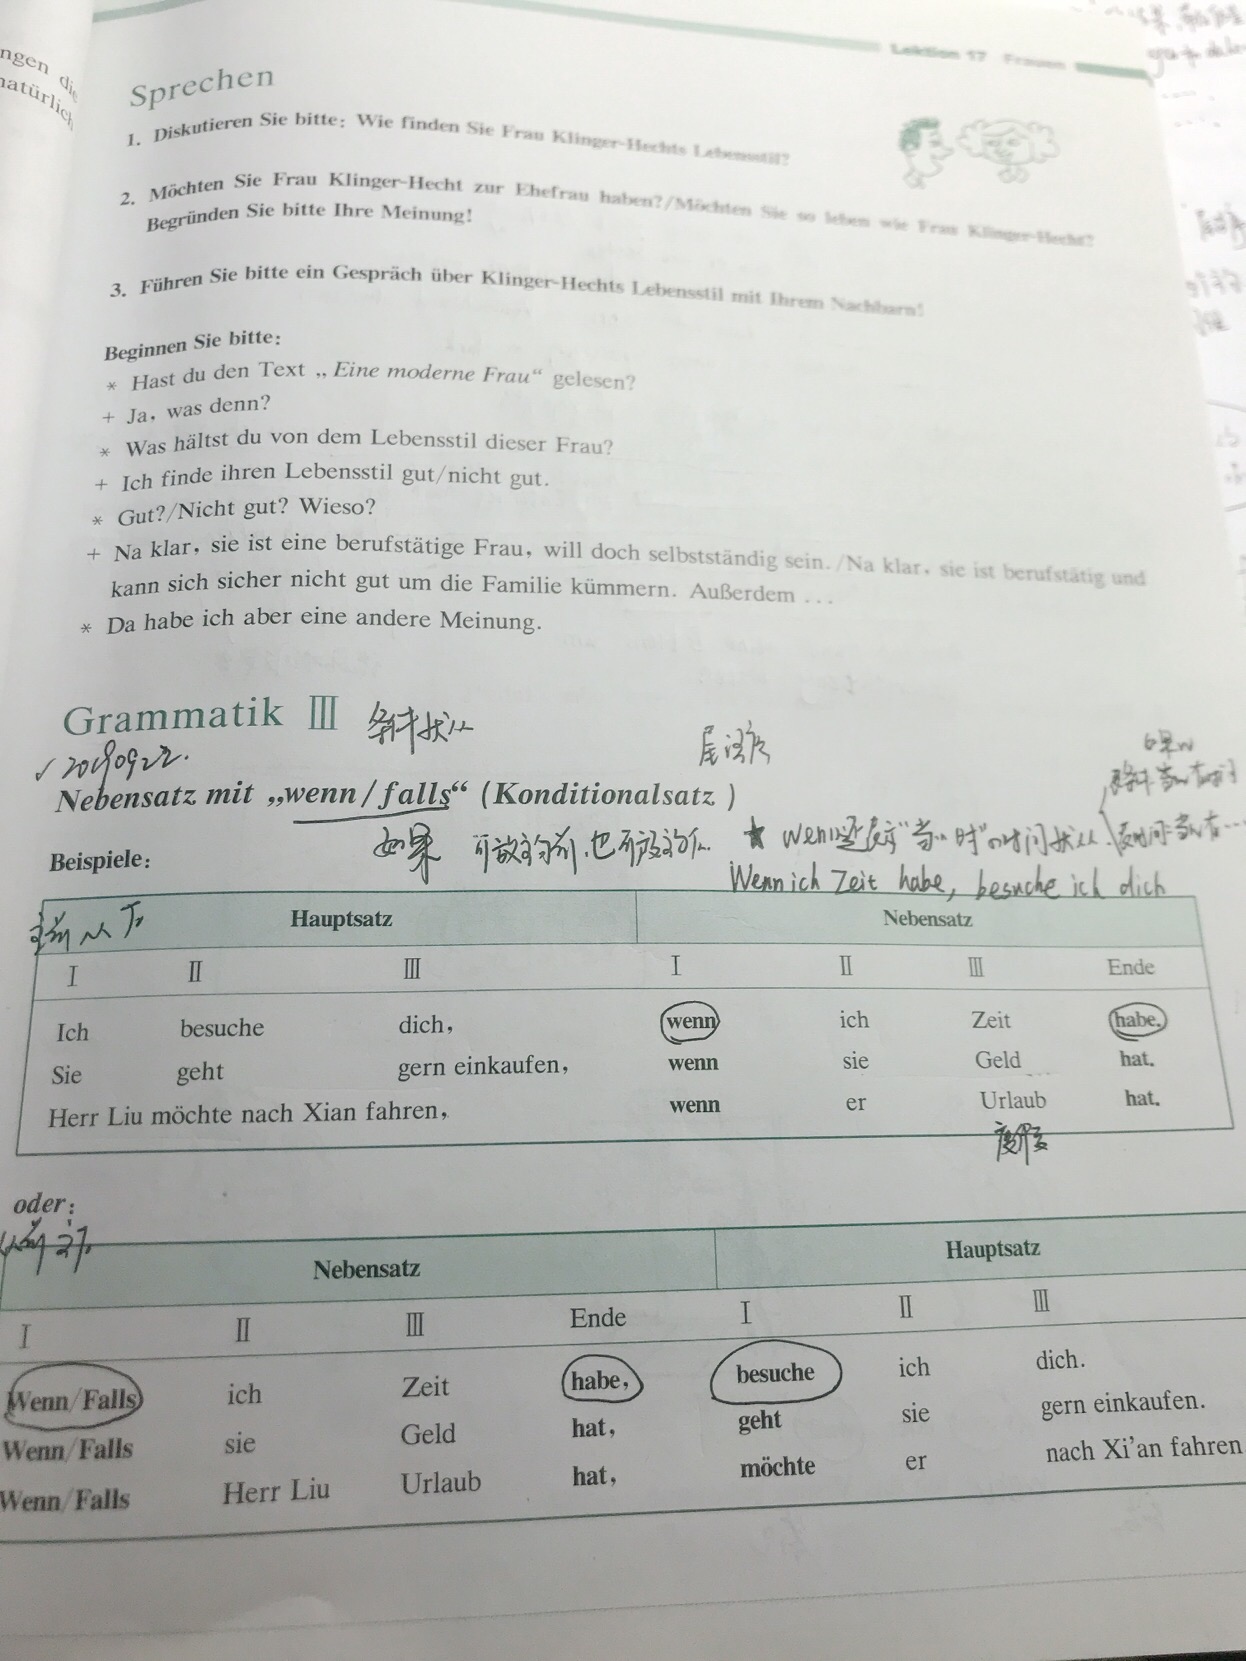 ngen die
natürlich
Lektion 17 Frauen
Sprechen
1. Diskutieren Sie bitte: Wie finden Sie Frau Klinger-Hechts Lebensstil?
2. Möchten Sie Frau Klinger-Hecht zur Ehefrau haben?/Möchten Sie so leben wie Frau Klinger-Hecht?
Begründen Sie bitte Ihre Meinung!
3. Führen Sie bitte ein Gespräch über Klinger-Hechts Lebensstil mit Ihrem Nachbarn!
Beginnen Sie bitte:
* Hast du den Text „Eine moderne Frau“ gelesen?
+ Ja, was denn?
* Was hältst du von dem Lebensstil dieser Frau?
+ Ich finde ihren Lebensstil gut/nicht gut.
* Gut?/Nicht gut? Wieso?
+ Na klar, sie ist eine berufstätige Frau, will doch selbstständig sein./Na klar, sie ist berufstätig und
kann sich sicher nicht gut um die Familie kümmern. Außerdem ...
* Da habe ich aber eine andere Meinung.
Grammatik Ⅲ 条件状从
尾语序
√ 20190922.
Nebensatz mit „wenn/falls“ (Konditionalsatz)
如果 可放主句前,也可放主句后.
★ wenn
Beispiele:
Wenn ich Zeit habe, besuche ich dich
主前从后
Hauptsatz Nebensatz
Ⅰ Ⅱ Ⅲ Ⅰ Ⅱ Ⅲ Ende
Ich besuche dich, wenn ich Zeit habe.
Sie geht gern einkaufen, wenn sie Geld hat.
Herr Liu möchte nach Xian fahren, wenn er Urlaub hat.
度假
oder:
从前主后
Nebensatz Hauptsatz
Ⅰ Ⅱ Ⅲ Ende Ⅰ Ⅱ Ⅲ
Wenn/Falls ich Zeit habe, besuche ich dich.
Wenn/Falls sie Geld hat, geht sie gern einkaufen.
Wenn/Falls Herr Liu Urlaub hat, möchte er nach Xi'an fahren